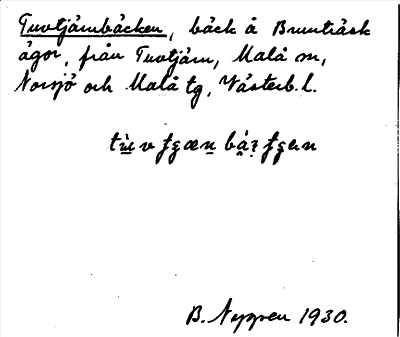 Tuvtjärnbäcken, bäck å Brunträsk
ägor, från Tuvtjärn, Malå sn,
Norsjö och Malå tg, Västerb. l.
B. Nygren 1930.